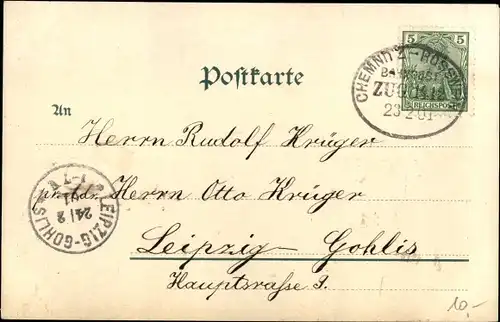 5 5
REICHSPOST
CHEMNITZ-ROSSW
BAHNPOST
ZUG
23 2 01
Postkarte
An
Herrn Rudolf Krüger
pr. Adr. Herrn Otto Krüger
Leipzig-Gohlis
Hauptstrasse 9.
LEIPZIG-GOHLIS
24/2
01
10.-